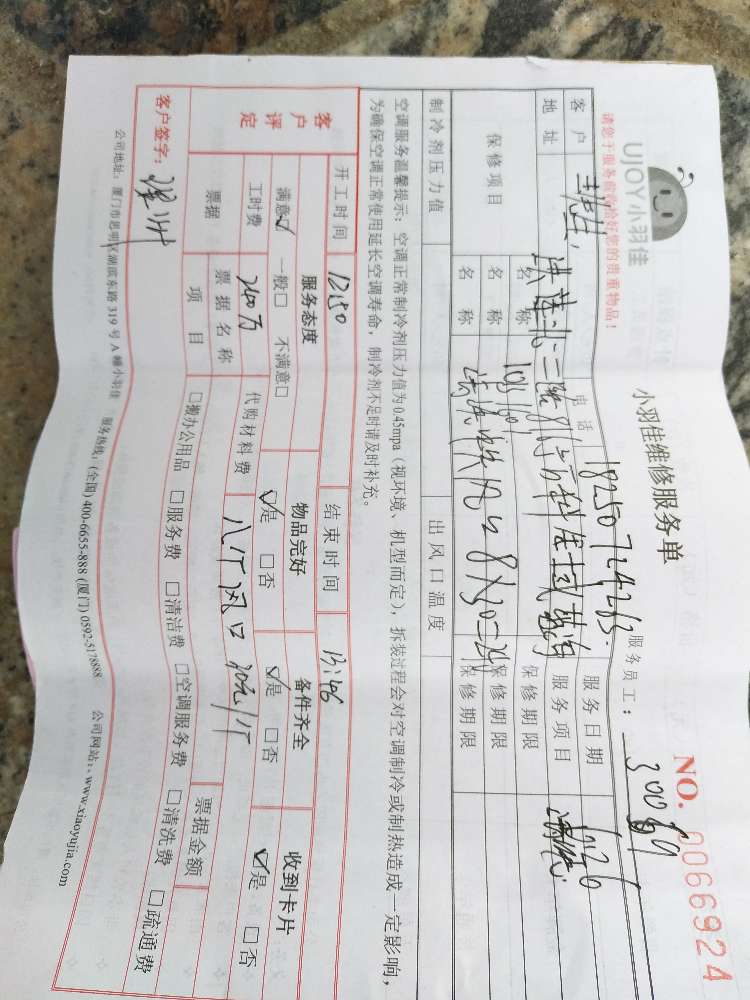 UJOY小羽佳
小羽佳维修服务单
NO. 0066924
请您于服务前收拾好您的贵重物品!
服务员工:
客户 电话 18250724263 服务日期
地址 服务项目 清洗
保修项目 名称 保修期限
名称 保修期限
名称 保修期限
制冷剂压力值 出风口温度
空调服务温馨提示:空调正常制冷剂压力值为0.45mpa(视环境、机型而定),拆装过程会对空调制冷或制热造成一定影响,
为确保空调正常使用延长空调寿命,制冷剂不足时请及时补充。
开工时间 12:50 结束时间 13:46
客户评定 服务态度 物品完好 备件齐全 收到卡片
满意☑ 一般□ 不满意□ ☑是 □否 ☑是 □否 ☑是 □否
工时费 240元 代购材料费 八个风口 30元/个
票据 票据名称 票据金额
项目 □搬办公用品 □服务费 □清洁费 □空调服务费 □清洗费 □疏通费
客户签字:
公司地址:厦门市思明区湖滨东路319号A幢小羽佳 服务热线:(全国)400-6655-888 (厦门)0592-5178888 公司网站:www.xiaoyujia.com